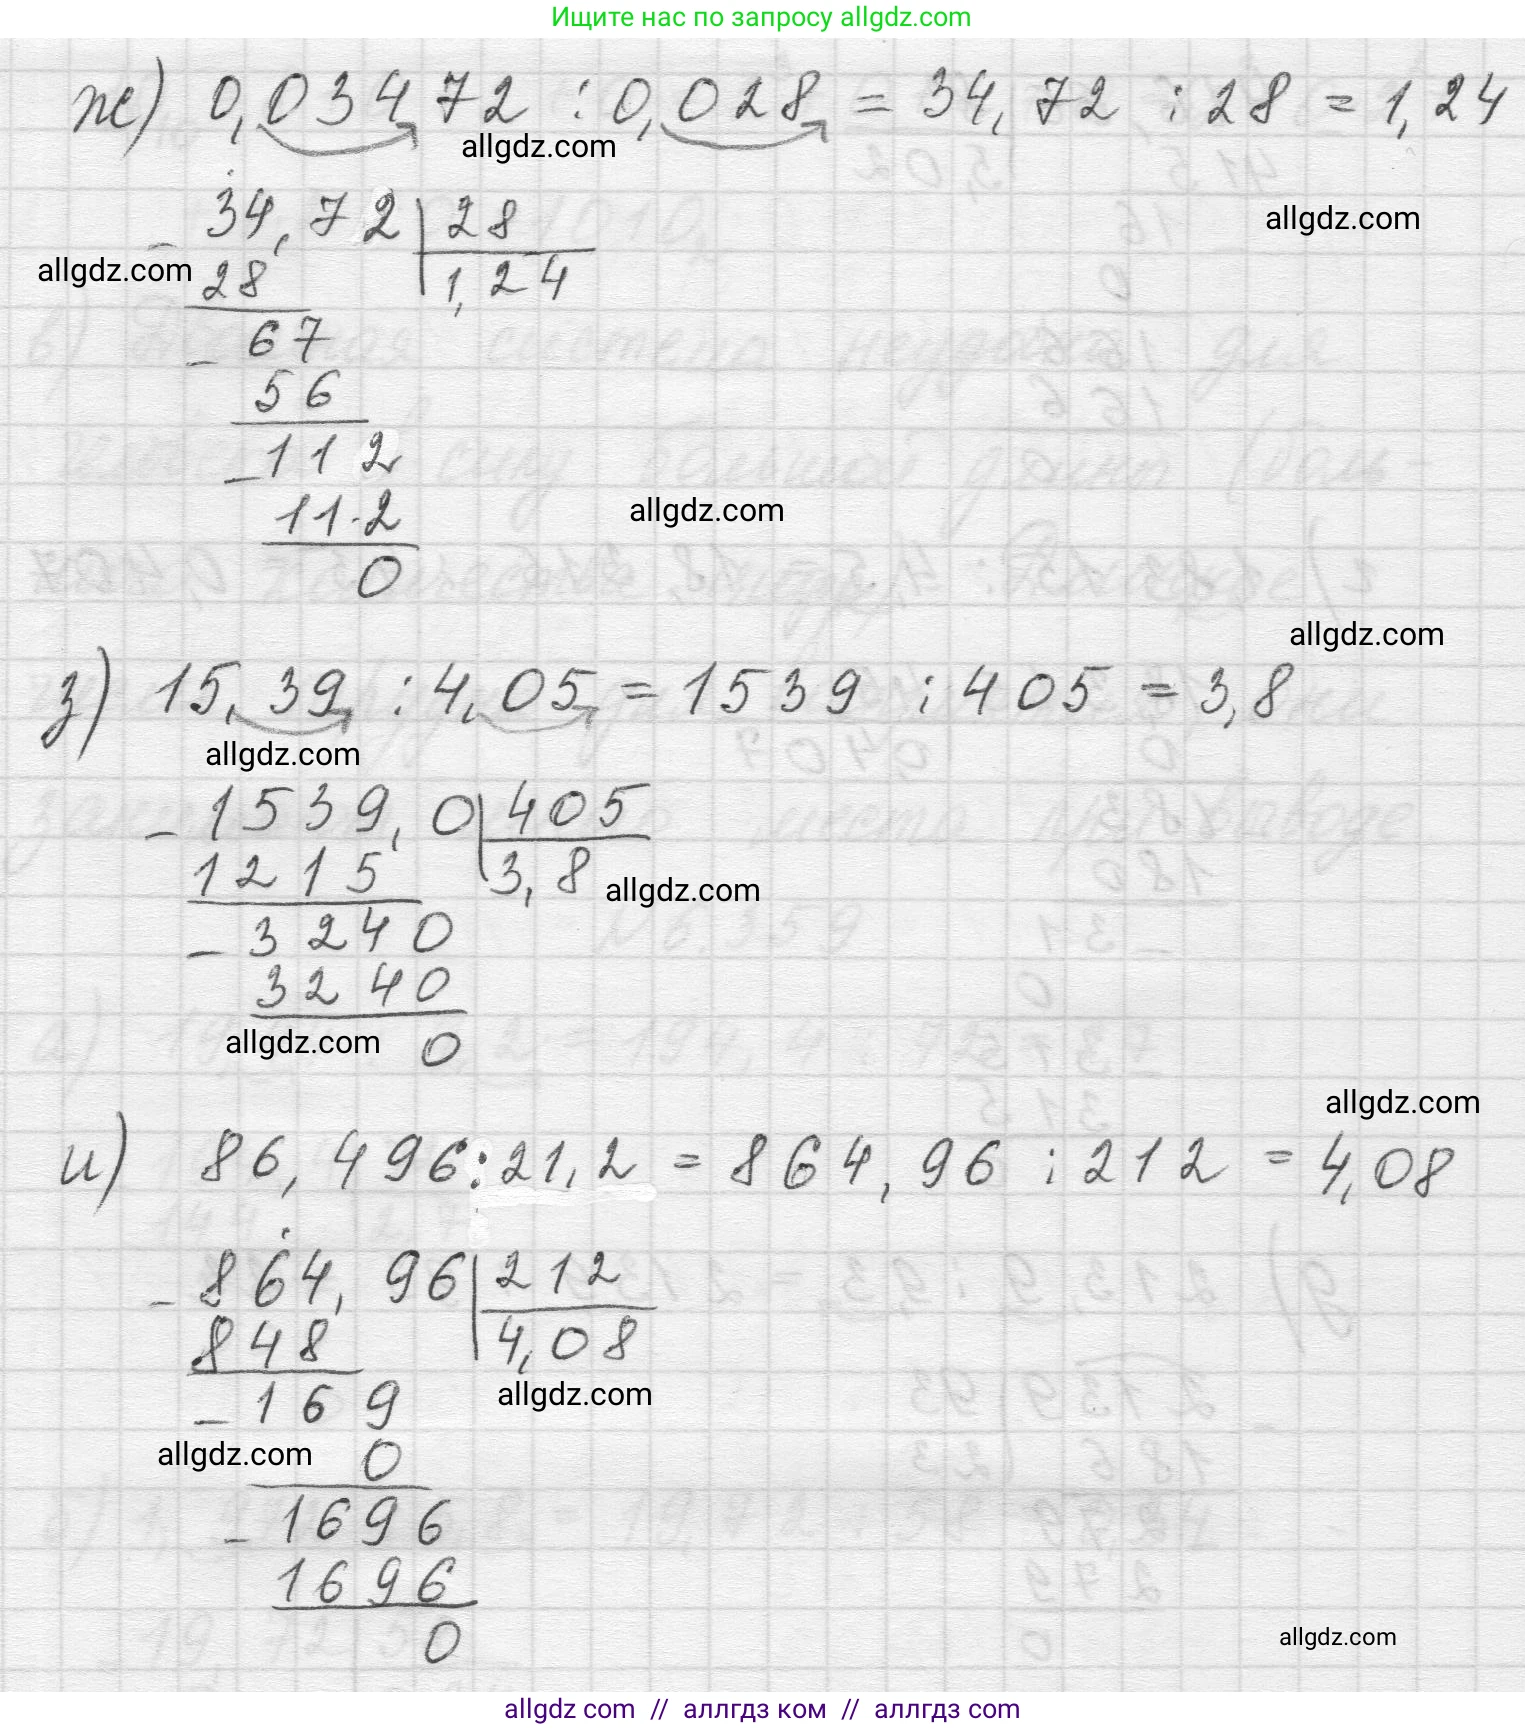 Ищите нас по запросу allgdz.com
ж) 0,03472 : 0,028 = 34,72 : 28 = 1,24
allgdz.com
34,72 | 28
allgdz.com
- 28 | 1,24
allgdz.com
- 67
56
- 112
112
allgdz.com
0
allgdz.com
з) 15,39 : 4,05 = 1539 : 405 = 3,8
allgdz.com
- 1539,0 | 405
1215 | 3,8
allgdz.com
- 3240
3240
allgdz.com
0
allgdz.com
и) 86,496 : 21,2 = 864,96 : 212 = 4,08
- 864,96 | 212
848 | 4,08
allgdz.com
- 169
allgdz.com
0
- 1696
1696
0
allgdz.com
allgdz.com // аллгдз ком // аллгдз.com